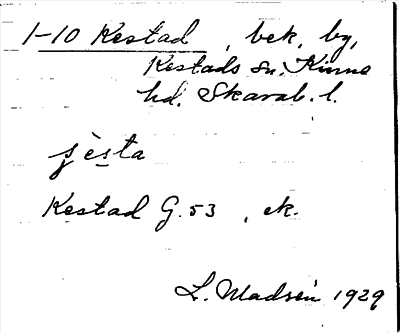 1-10 Kestad, bek. by,
Kestads sn. Kinne
hd. Skarab. l.
Kestad G. 53, ek.
L. Madsén 1929